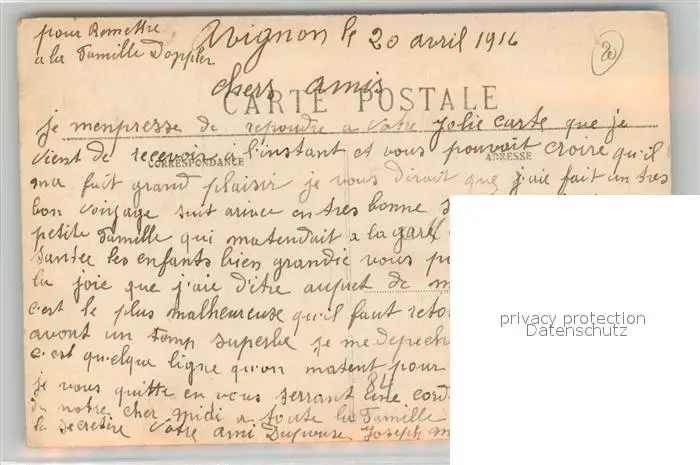 pour Remettre
a la Famille Doppler
Avignon le 20 avril 1916
20
chers amis
CARTE POSTALE
je menpresse de repondre a votre Jolie carte que je
vient de recevoir a l'instant et vous pouvait croire qu'il
CORRESPONDANCE
ADRESSE
ma fait grand plaisir je vous dirait que j'aie fait un tres
bon voyage suit arrive en tres bonne
petite Famille qui matendait a la gare
santée les enfants bien grandie vous
la joie que j'aie d'etre aupret de
c'est le plus malheureuse qu'il faut
avont un temp superbe je me depeche
c'est quelque ligne qu'on matent pour
84
je vous quitte en vous serrant une
de notre cher midi a toute la Famille
le secretère Votre ami Joseph
privacy protection
Datenschutz